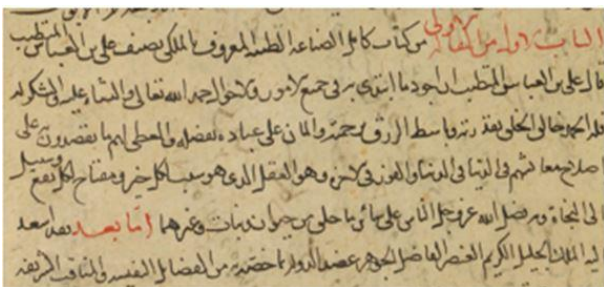 الباب الاول من المقالة الاولى من كتاب كامل الصناعة الطبية المعروف بالملكي تصنيف علي بن العباس المتطبب
قال علي بن العباس المتطبب ان اجود ما ابتدي به في جميع الامور والاحوال حمد الله تعالى والثناء عليه والشكر له
فلله الحمد خالق الخلق بقدرته وباسط الرزق برحمته والمان على عباده بفضله والمعطي لهم ما يقصدون به على
اصلاح معائشهم في الدنيا في الدنيا والفوز في الاخرة وهو العقل الذي هو سبب لكل خير ومفتاح لكل نفع وسبيل
الى النجاة وبه فضل الله عز وجل الناس على سائر ما خلق من حيوان ونبات وغيرهما اما بعد بعد اسعد
الله الملك الجليل الكريم العنصر الفاضل الجوهر عضد الدولة بما خصه به من الفضائل النفيسة والمناقب الشريفة